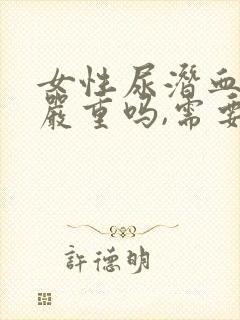 女性尿潜血
嚴重吗,需要
許德明